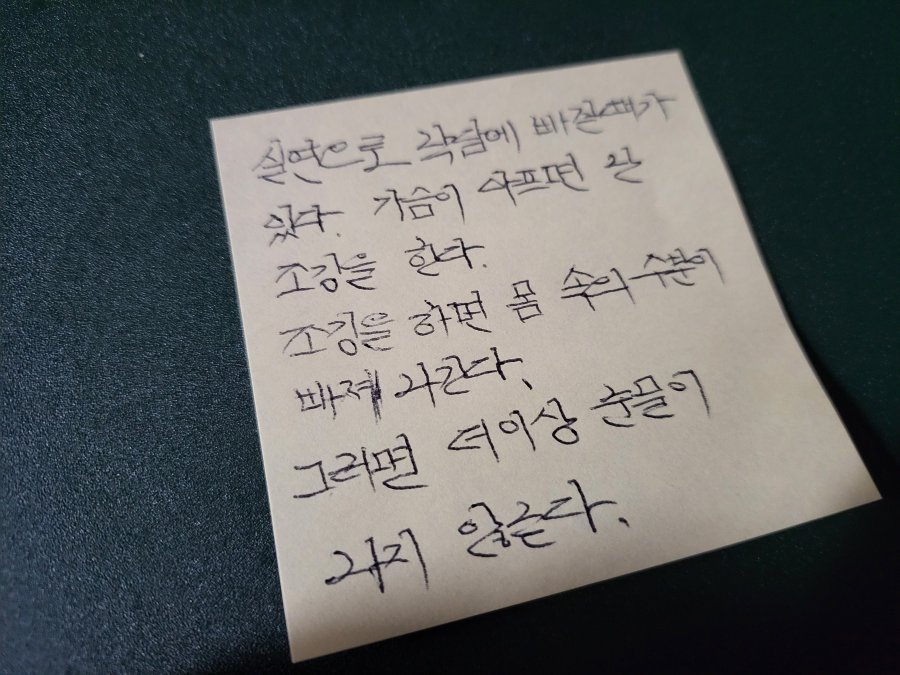 실연으로 각혐에 빠질때가
있다. 가슴이 아프면 난
조깅을 한다.
조깅을 하면 몸 속의 수분이
빠져 나간다.
그러면 더이상 눈물이
나지 않는다.